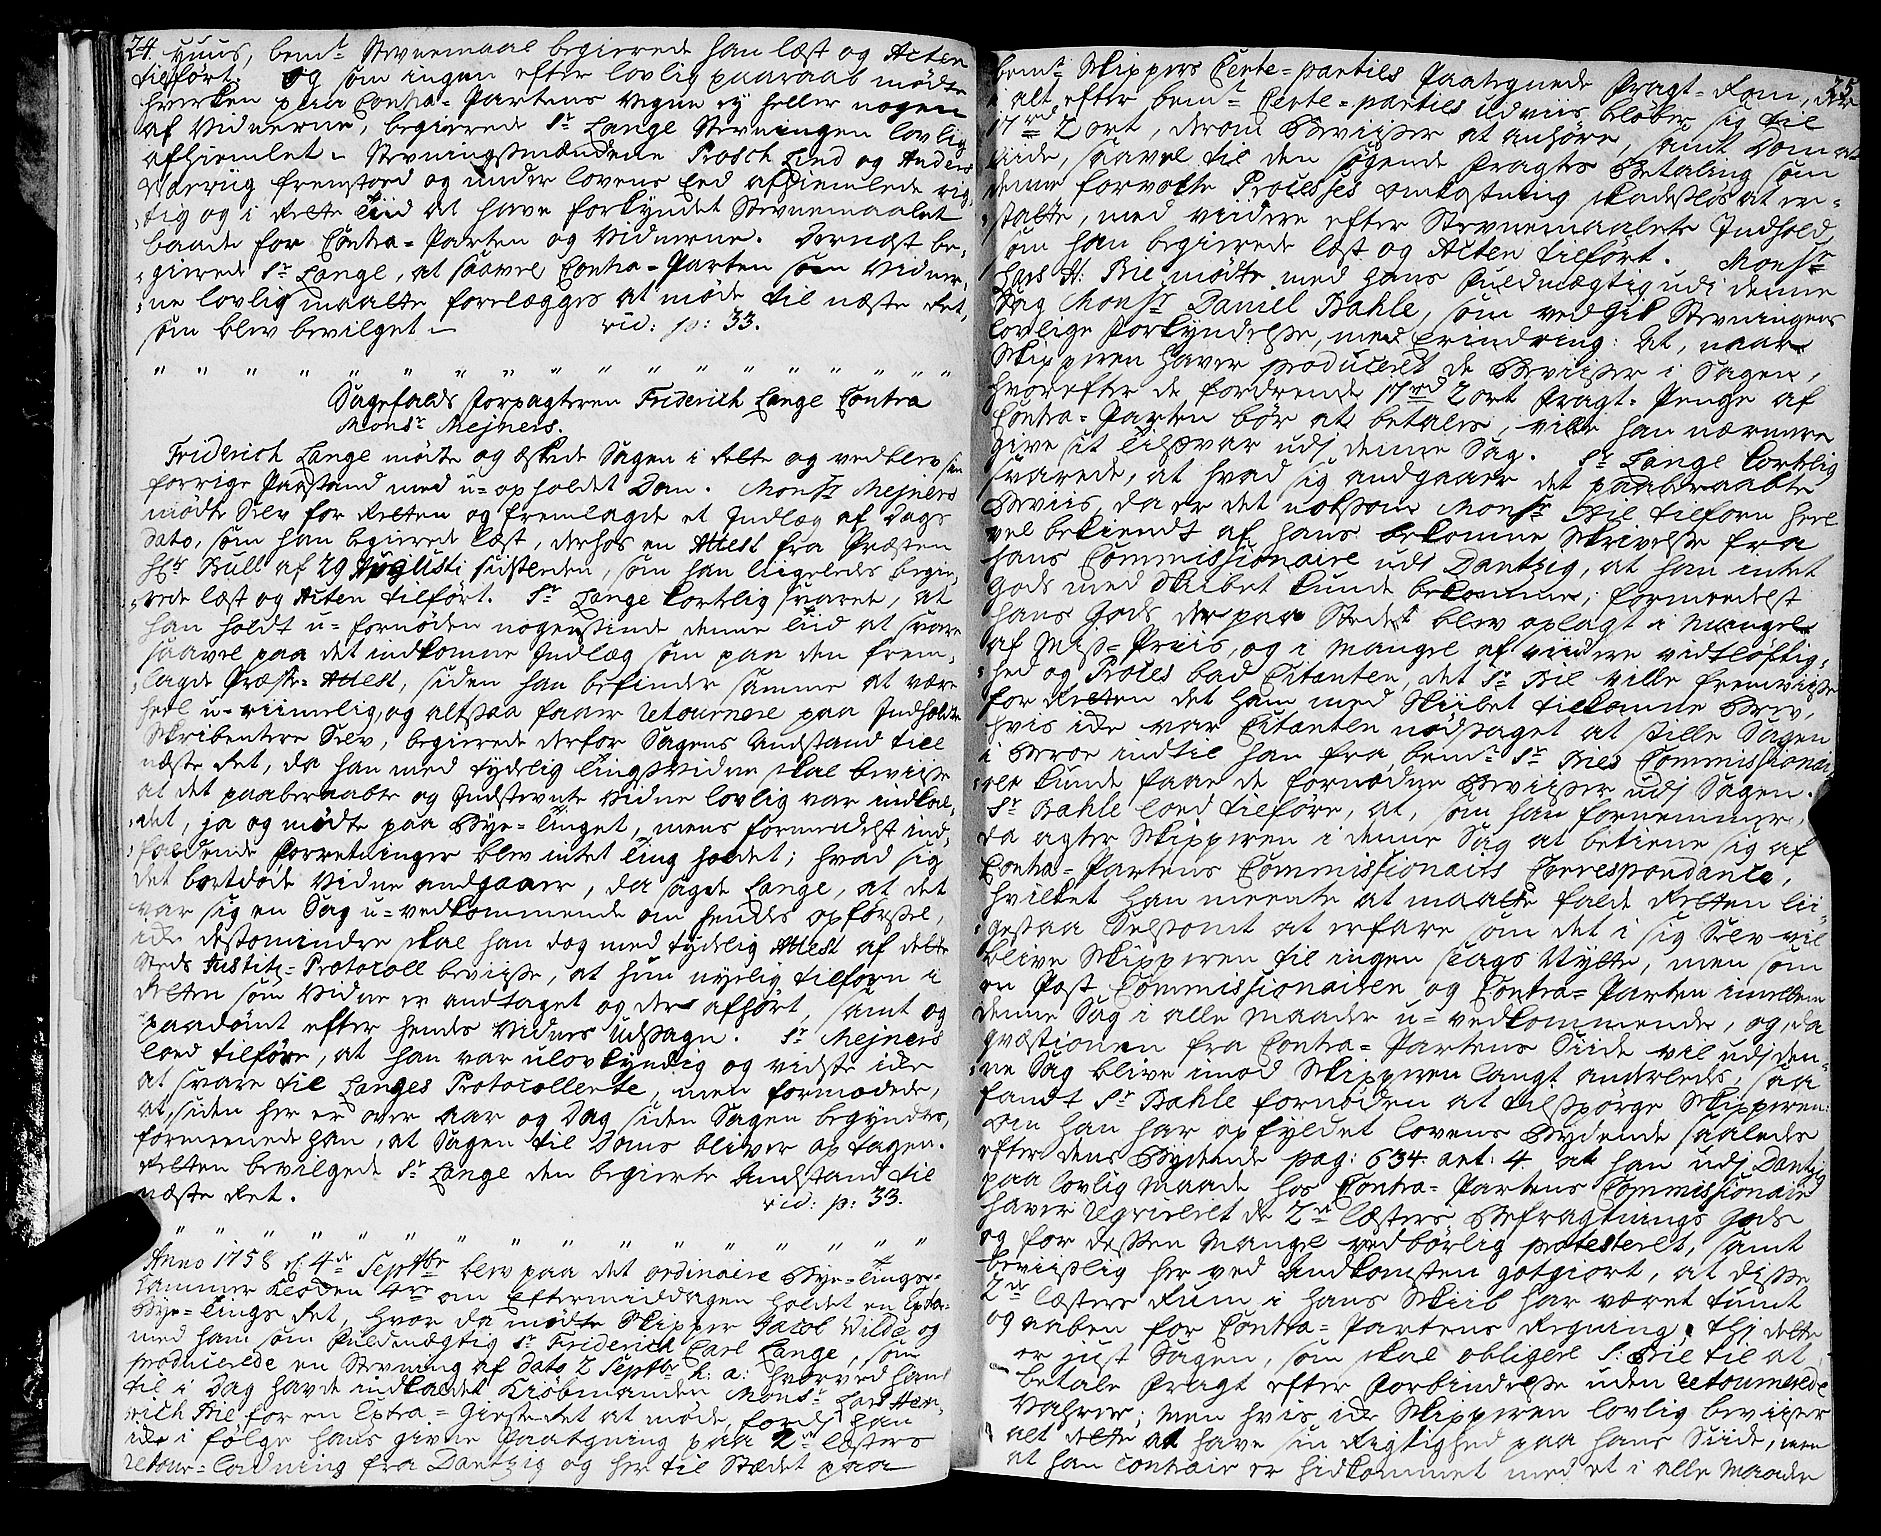 24.
huus, bemte Stevnemaal begierede han læst og Acten
tilført. Og som ingen efter lovlig paaraab mødte
hverken paa Contra-Partens Vegne ey heller nogen
af Vidnerne, begierede Sr Lange Stevningen lovlig
afhiemlet. Stevningsmændene Prosch Lind og Anders
fremstoed og under lovens Eed afhiemlede rig-
tig og i rette tiid at have forkyndet Stevnemaalet
baade for Contra-Parten og Vidnerne. Dernæst be-
gierede Sr Lange, at saavel Contra-Parten som Vidner-
ne lovlig maatte forelægges at møde til næste Ret,
som blev bevilget. vid: p: 33.
Sagefalds Forpagteren Friderich Lange Contra
Monsr Mejners.
Friderich Lange mødte og æskede Sagen i Rette og vedblev sin
forrige Paastand med u-opholdet Dom. Monsr Mejners
mødte Selv for Retten og fremlagde et Indlæg af Dags
dato, som han begierede læst, derhos en Attest fra Præsten
Hr Bull af 29 Augusti sidstleden, som han liigeledes begie-
rede læst og Acten tilført. Sr Lange kortelig svarede, at
han holdt u-fornøden nogensinde denne tiid at svare
saavel paa det indkomne Indlæg som paa den frem-
lagde Præste-Attest, siden han befinder samme at være
heel u-riimelig, og altsaa faar retournere paa Indholdets
Skribentere Selv, begierede derfor Sagens Anstand till
næste Ret, da han med tydelig tingsvidne skal bevise
at det paaberaabte og Indstevnte Vidne lovlig var indkal-
det, ja og mødte paa Bye-Tinget, mens formedelst ind-
faldende Forretninger blev intet Ting holdet; hvad sig
det bortdøde Vidne andgaaer, da sagde Lange, at det
var sig en Sag u-vedkommende om hendes opførsel,
icke destomindre skal han dog med tydelig Attest af dette
Steds Justitz-Protocoll bevise, at hun nyelig tilforn i
Retten som Vidne er andtaget og der afhørt, samt og
paadømt efter hendes Vidnes Udsagn. Sr Mejners
loed tilføre, at han var ulovkyndig og vidste icke
at svare til Langes Protocollerte, men formodede,
at, siden her er over Aar og Dag siden Sagen begyndes,
formeenede han, at Sagen til Doms bliver optagen.
Retten bevilgede Sr Lange den begierte Andstand til
næste Ret. vid: p: 33.
Anno 1758 d: 4de Septbr blev paa det ordinaire Bye-Tings-
Kammer Kloken 4re om Eftermiddagen holdet en Extra-
Bye-Tings Ret, hvor da mødte Skipper Jacob Wilde og
med ham som Fuldmægtig Sr Friderich Carl Lange, som
producerede en Stevning af Dato 2 Septbr h: a: hvorved hand
til i Dag havde indkaldet Kiøbmanden Monsr Lars Hen-
rich Bie for en Extra-Giesteret at møde, fordi han
icke i følge hans givne Paategning paa 2de læsters
retour-ladning fra Dantzig og her til Stædet paa
25
bemte Skippers Certe-parties Paategnede Fragt-Rom, der
i alt efter bemte Certe-parties Udviis beløber sig til
17rd 2 ort, derom Beviiser at anhøre, samt Dom at
liide, saavel til den søgende Fragts Betaling som
denne forvolte Processes omkostning skadesløs at er-
statte, med viidere efter Stevnemaalets Indhold
som han begierede læst og Acten tilført. Monsr
Lars H: Bie mødte med hans Fuldmægtig udi denne
Sag Monsr Daniel Bahle, som vedgik Stevningens
lovlige Forkyndelse, med Erindring: At, naar
Skipperen haver produceret de Beviiser i Sagen,
hvorefter de fordrende 17rd 2 ort Fragt-Penge af
Contra-Parten bør at betales, ville han nærmere
give sit Tilsvar udj denne Sag. Sr Lange kortelig
svarede, at hvad sig andgaaer det paaberaabte
Beviis, da er det noksom Monsr Bie tilforn heel
vel bekiendt af hans bekomne Skrivelse fra
hans Commissionaire udi Dantzig, at han intet
Gods med Skibet kunde bekomme, formedelst
hans Gods der paa Stedet blev oplagt i Mangel
af Miss-Priis, og i Mangel af viidere vidtløftig-
hed og Proces bad Citanten, det Sr Bie ville fremviise
for Retten det ham med Skibet tilkomne Brev,
hvis icke var Citanten nødsaget at stille Sagen
i Beroe indtil han fra bemte Sr Bies Commissionai-
rer kunde faae de fornødne Beviiser udj Sagen.
Sr Bahle loed tilføre, at, som han fornemmer,
da agter Skipperen i denne Sag at betiene sig af
Contra-Partens Commissionairs Correspondance,
hvilket han meente at maatte falde Retten lii-
gesaa selsomt at erfare som det i sig Selv vil
blive Skipperen til ingen slags Nytte, men som
en Post Commissionairen og Contra-Parten imellem
denne Sag i alle Maader u-vedkommende, og, da
qvæstionen fra Contra-Partens Siide vil udj den-
ne Sag blive imod Skipperen langt anderledes, saa
fandt Sr Bahle fornøden at tilspørge Skipperen:
Om han har opfyldet lovens Bydende saaledes
efter dens Bydende pag: 634 art: 4 at han udj Dantzig
paa lovlig Maade hos Contra-Partens Commissionair
haver reqvireret de 2de læsters Befragtnings Gods
og for dessen Mangel vedbørlig protesteret, samt
beviislig her ved Andkomsten gotgiort, at disse
2de læsters Rum i hans Skiib har været tomt
og aaben for Contra-Partens Regning, thj dette
er just Sagen, som skal obligere Sr Bie til at
betale Fragt efter Forbindelse uden retournerede
Vahrer; Men hvis icke Skipperen lovlig beviiser
alt dette at have sin Rigtighed paa hans Siide, men
at han contrair er hidkommet med et i alle Maader